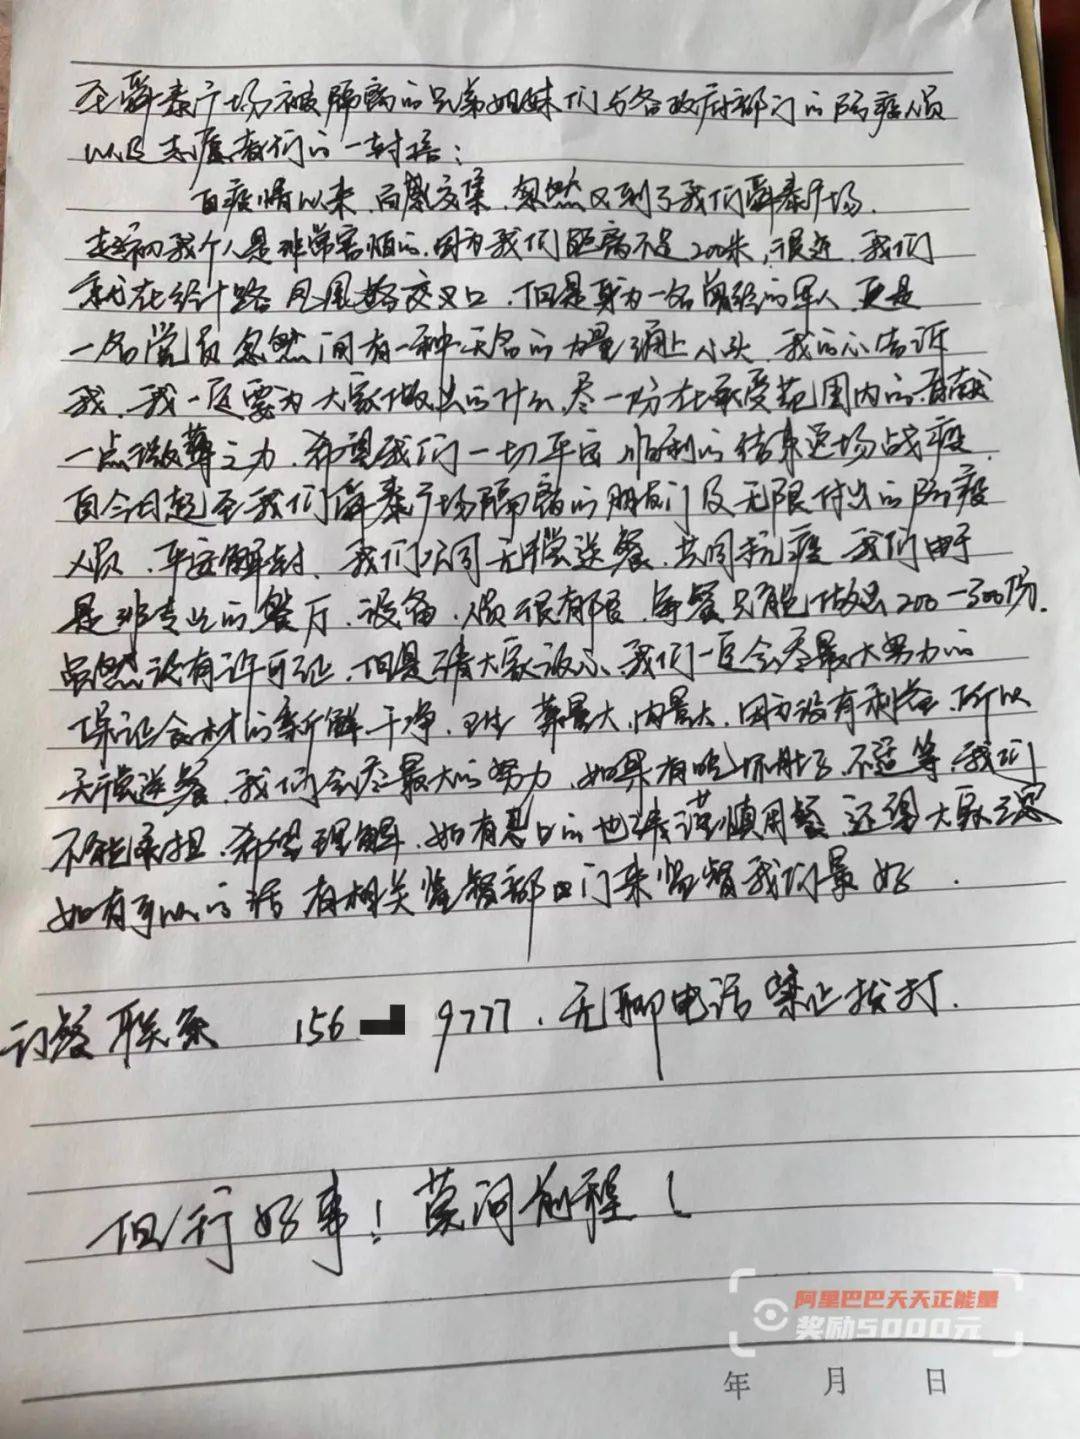 至舜泰广场被隔离的兄弟姐妹们与各政府部门的防疫人员
以及志愿者们的一封信：
自疫情以来，百感交集，忽然又到了我们舜泰广场，
起初我个人是非常害怕的，因为我们距离不足200米，很近，我们
就在经十路凤凰路交叉口，但是身为一名曾经的军人，更是
一名党员，忽然间有一种无名的力量涌上心头，我的心告诉
我，我一定要为大家做出的什么，尽一份在承受范围内的，贡献
一点微薄之力，希望我们一切平安顺利的结束这场战疫，
自今日起至我们舜泰广场隔离的朋友门及无限付出的防疫
人员，平安解封，我们公司无偿送餐，共同抗疫，我们由于
是非专业的餐厅，设备，人员很有限，每餐只能做出200一300份，
虽然没有许可证，但是请大家放心，我们一定会尽最大努力的
保证食材的新鲜干净，卫生，菜量大，肉量大，因为没有利益，所以
无偿送餐，我们会尽最大的努力，如果有吃坏肚子，不适等，我们
不能承担，希望理解，如有忌口的也请谨慎用餐，还望大家注意
如有可以的话 有相关监督部门来监督我们最好．
订餐联系 156 9777，无聊电话禁止拨打．
但行好事！莫问前程！
阿里巴巴天天正能量
奖励5000元
年 月 日